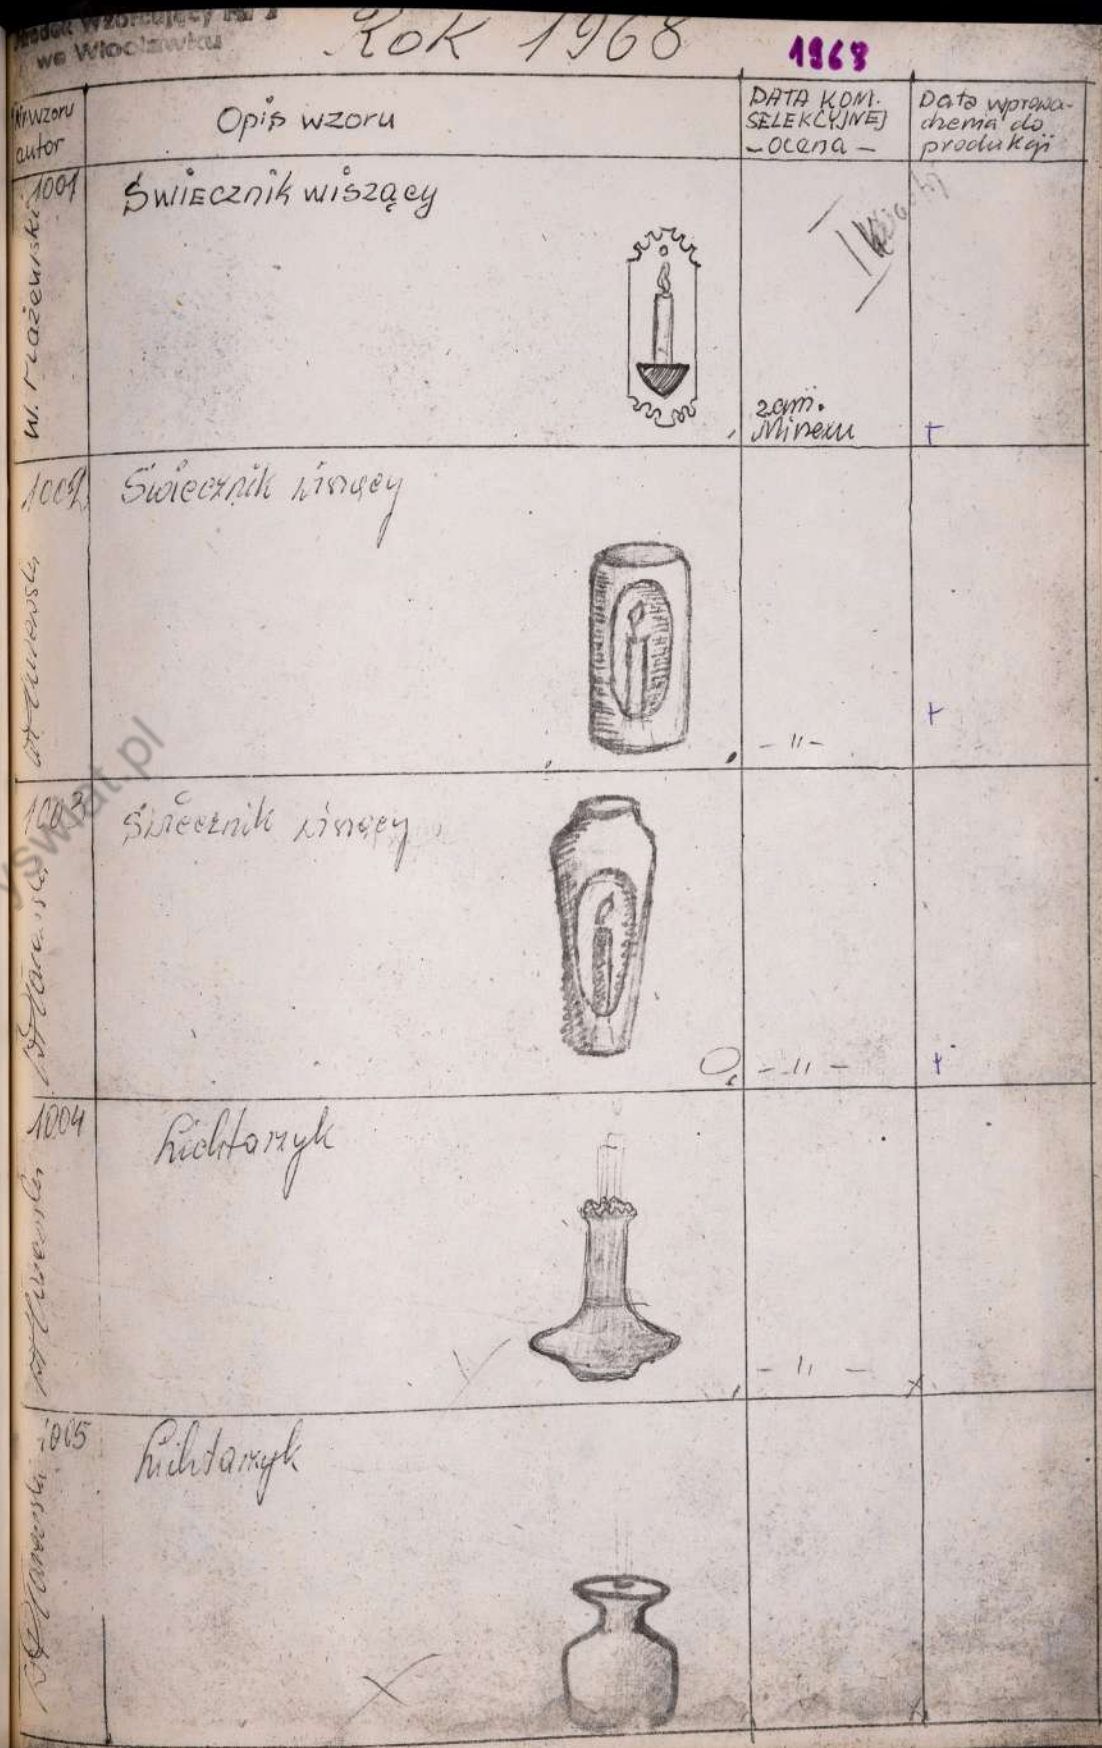 Ośrodek Wzorcujący Nr 2
we Włocławku
Rok 1968
1968
Nr wzoru
autor
Opis wzoru
DATA KOM.
SELEKCYJNEJ
- ocena -
Data wprowa-
dzenia do
produkcji
1001
Świecznik wiszący
zam.
Minexu
+
1002
Świecznik wiszący
- " -
+
1003
Świecznik wiszący
- " -
+
1004
Lichtarzyk
- " -
x
1005
Lichtarzyk
yswiat.pl